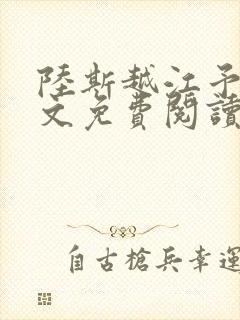 陸斯越江予
文免費閱讀
自古槍兵幸運